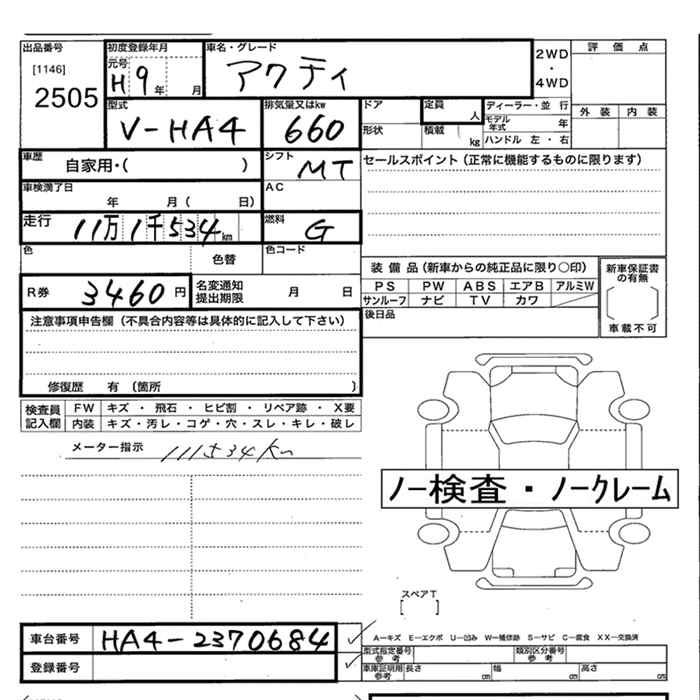 出品番号 初度登録年月 車名・グレード 2WD・4WD 評価点
[1146] 元号 H9年 月 アクティ
2505
型式 排気量又はkw ドア 定員 人 ディーラー・並行 外装 内装
V-HA4 660 形状 積載 kg モデル年式 年
ハンドル 左・右
車歴 自家用・( ) シフト MT セールスポイント(正常に機能するものに限ります)
車検満了日 年 月( 日) AC
走行 11万1千534km 燃料 G
色 色替 色コード
装備品(新車からの純正品に限り○印) 新車保証書の有無
R券 3460円 名変通知提出期限 月 日 PS PW ABS エアB アルミW
サンルーフ ナビ TV カワ [ ]
注意事項申告欄(不具合内容等は具体的に記入して下さい) 後日品 車載不可
修復歴 有 (箇所 )
検査員記入欄 FW キズ・飛石・ヒビ割・リペア跡・X要
内装 キズ・汚レ・コゲ・穴・スレ・キレ・破レ
メーター指示 111534km
ノー検査・ノークレーム
スペアT
[ ]
車台番号 HA4-2370684 A-キズ E-エクボ U-凹み W-補修跡 S-サビ C-腐食 XX-交換済
登録番号 型式指定番号 参考 類別区分番号 参考
車庫証明用 参考 長さ cm 幅 cm 高さ cm